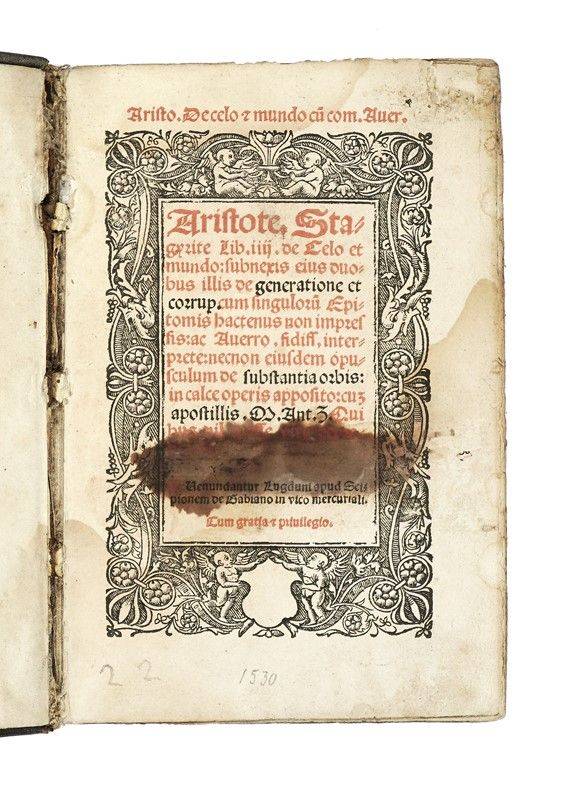 Aristo. De celo ⁊ mundo cū com. Auer.
Aristote. Sta⸗
gyrite Lib. iiij. de Celo et
mundo: subnexis eius duo⸗
bus illis de generatione et
corrup. cum singulorū Epi⸗
tomis hactenus non impres
sis: ac Averro. fidiss. inter⸗
prete: necnon eiusdem opu⸗
sculum de substantia orbis:
in calce operis apposito: cuȝ
apostillis. M. Ant. Z. Qui
Venundantur Lugduni apud Sci⸗
pionem de Gabiano in vico mercuriali.
Cum gratia ⁊ privilegio.
2 2.
1530